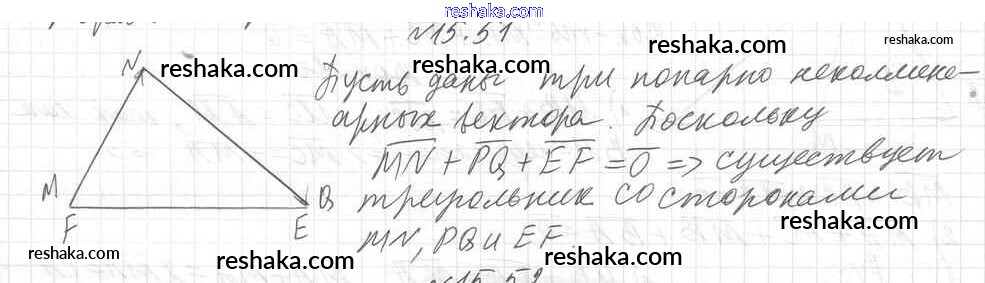 reshaka.com
№15.51
reshaka.com
Пусть даны три попарно неколлине-
арных вектора. Поскольку
MN + PQ + EF = 0 => существует
треугольник со сторонами
MN, PQ и EF.
N
M
F
Q
E
reshaka.com
reshaka.com
reshaka.com
reshaka.com
reshaka.com
reshaka.com
reshaka.com
reshaka.com
№15.52